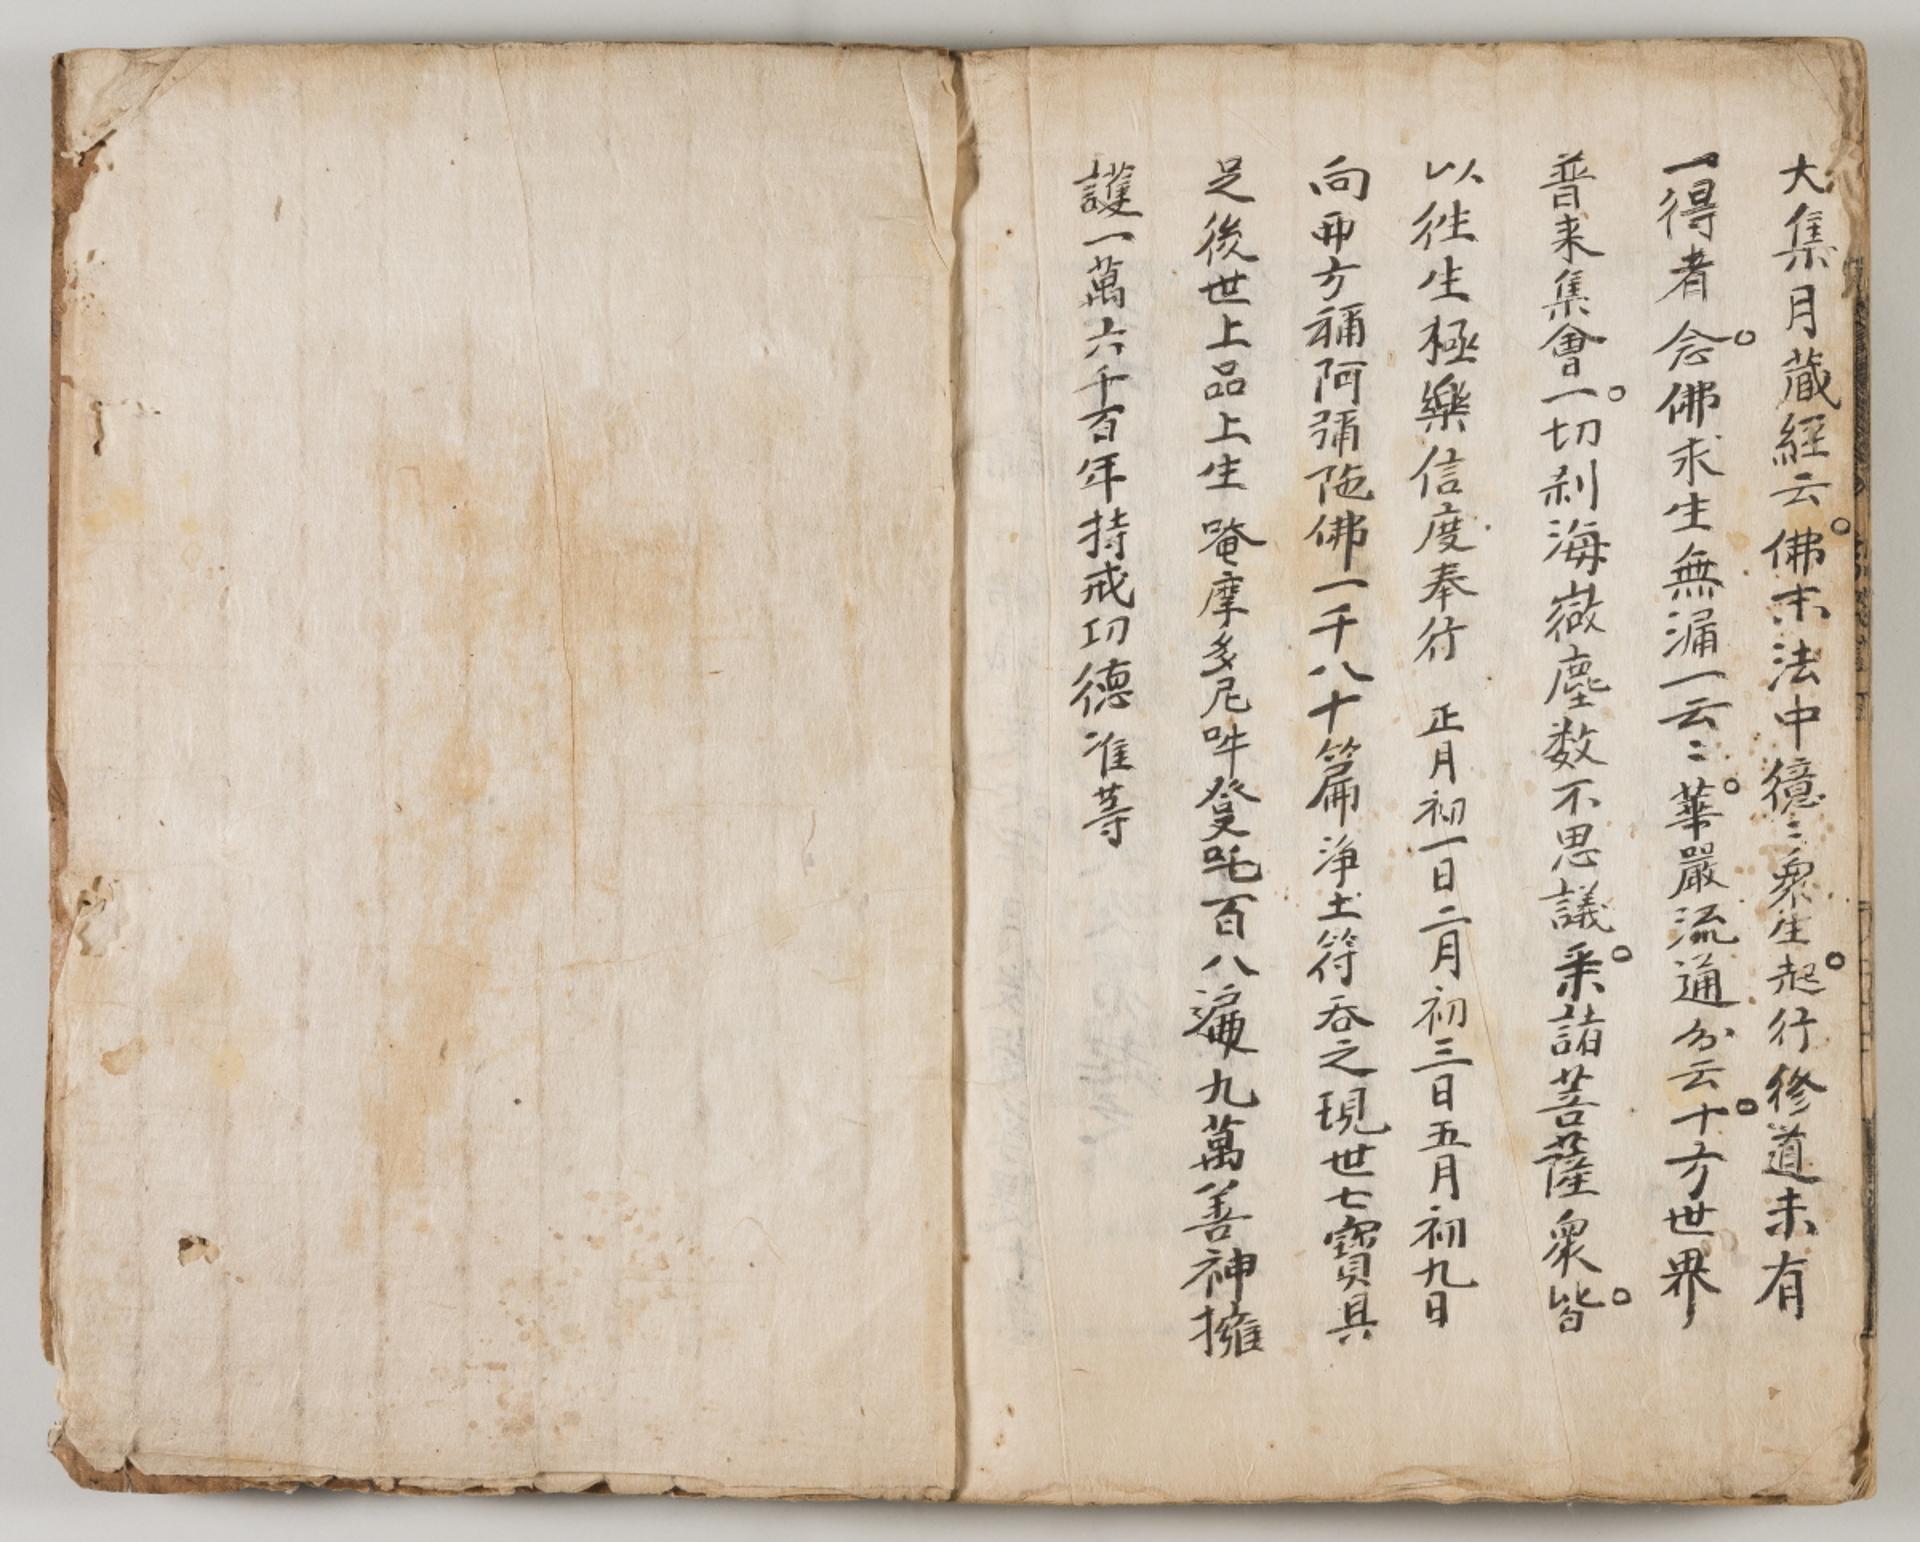 大集月藏經云佛末法中億〻衆生起行修道未有
一得者念佛求生無漏一云〻華嚴流通分云十方世界
普来集會一切刹海微塵数不思議来諸菩薩衆皆
以徃生極樂信度奉行 正月初一日二月初三日五月初九日
向西方稱阿彌陁佛一千八十篇淨土符呑之現世七寶具
足後世上品上生 唵摩多尼吽登吒百八遍九萬善神擁
護一萬六千百年持戒功德准等